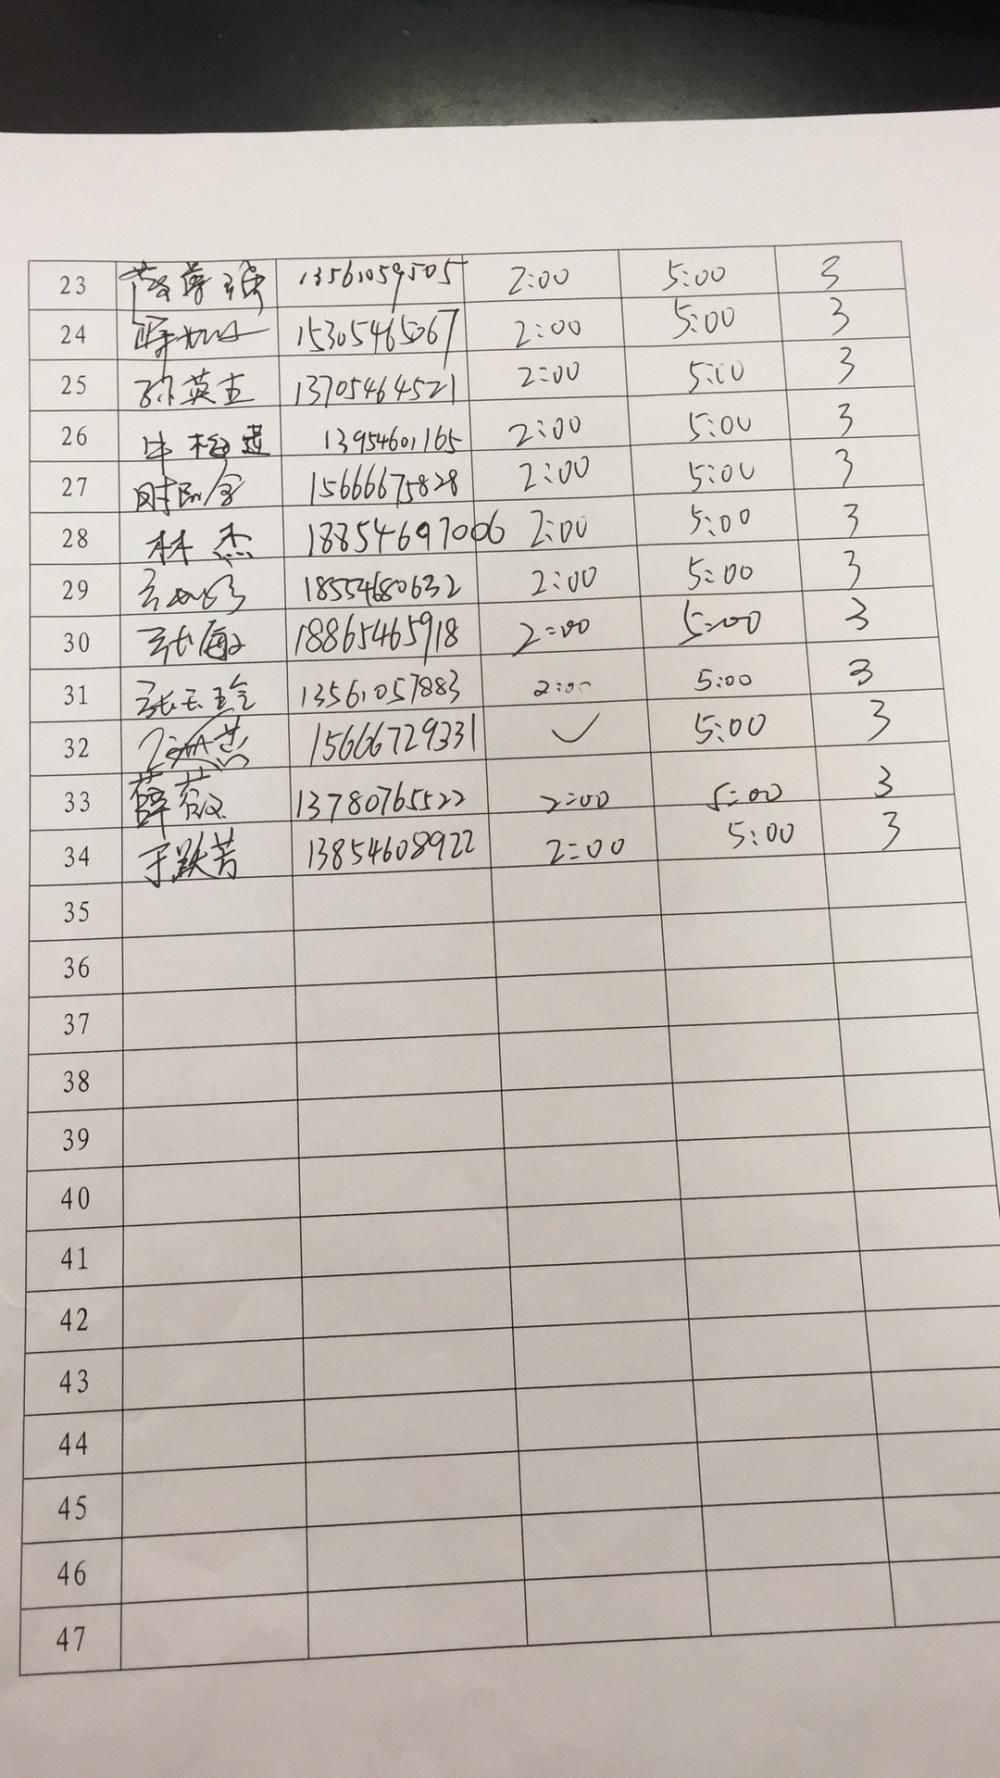 23 13561059505 2:00 5:00 3
24 15305465067 2:00 5:00 3
25 孙英吉 13705464521 2:00 5:00 3
26 13954601165 2:00 5:00 3
27 15666675828 2:00 5:00 3
28 林杰 18854697006 2:00 5:00 3
29 18554680632 2:00 5:00 3
30 张敏 18865465918 2:00 5:00 3
31 张玉玲 13561057883 2:00 5:00 3
32 15666729331 ✓ 5:00 3
33 薛蕊 13780765522 2:00 5:00 3
34 于跃芳 13854608922 2:00 5:00 3
35
36
37
38
39
40
41
42
43
44
45
46
47